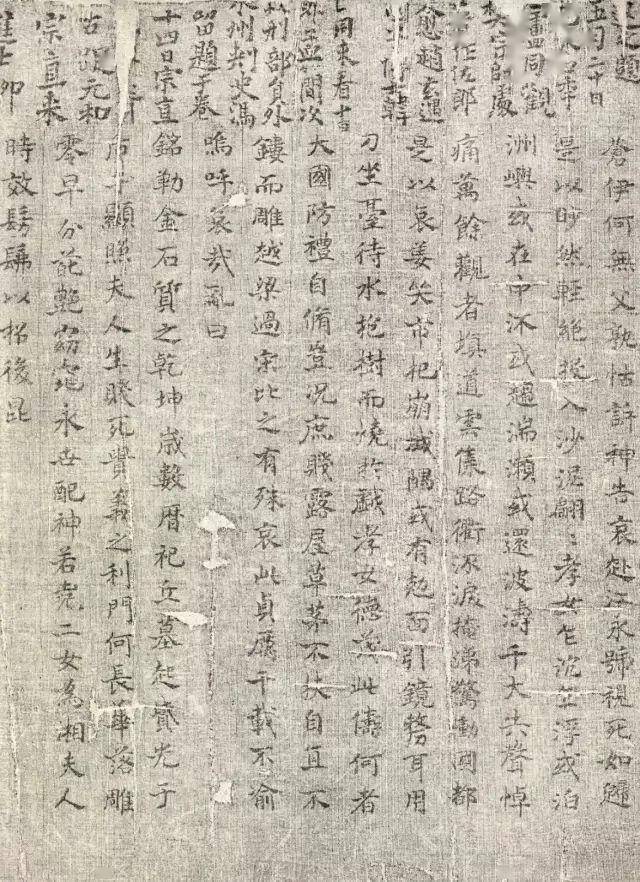 進題
五月二十日
盧同觀
樊宗師處
著作佐郎
愈趙玄遇
博士韓
同來看十
刑部員外
州刺史馮
留題于卷
十四日宗直
題元和
宗直來
進士
蒼伊何無父孰怙訴神告哀赴江永號視死如歸
是以眇然輕絕投入沙泥翩:孝女乍沉乍浮或泊
洲嶼或在中流或趨湍瀨或還波濤千夫共聲悼
痛萬餘觀者填道雲集路衢流淚掩涕驚動國都
是以哀姜哭市杞崩城隅或有剋面引鏡剺耳用
刀坐臺待水抱樹而燒於戲孝女德茂此儔何者
大國防禮自脩豈況庶賤露屋草茅不扶自直不
鏤而雕越梁過宋比之有殊哀此貞厲千載不渝
嗚呼哀哉亂曰
銘勒金石質之乾坤歲數曆祀丘墓起墳光于
后土顯照夫人生賤死貴義之利門何長華落雕
零早分葩艷窈窕永世配神若堯二女為湘夫人
時效髣髴以招後昆